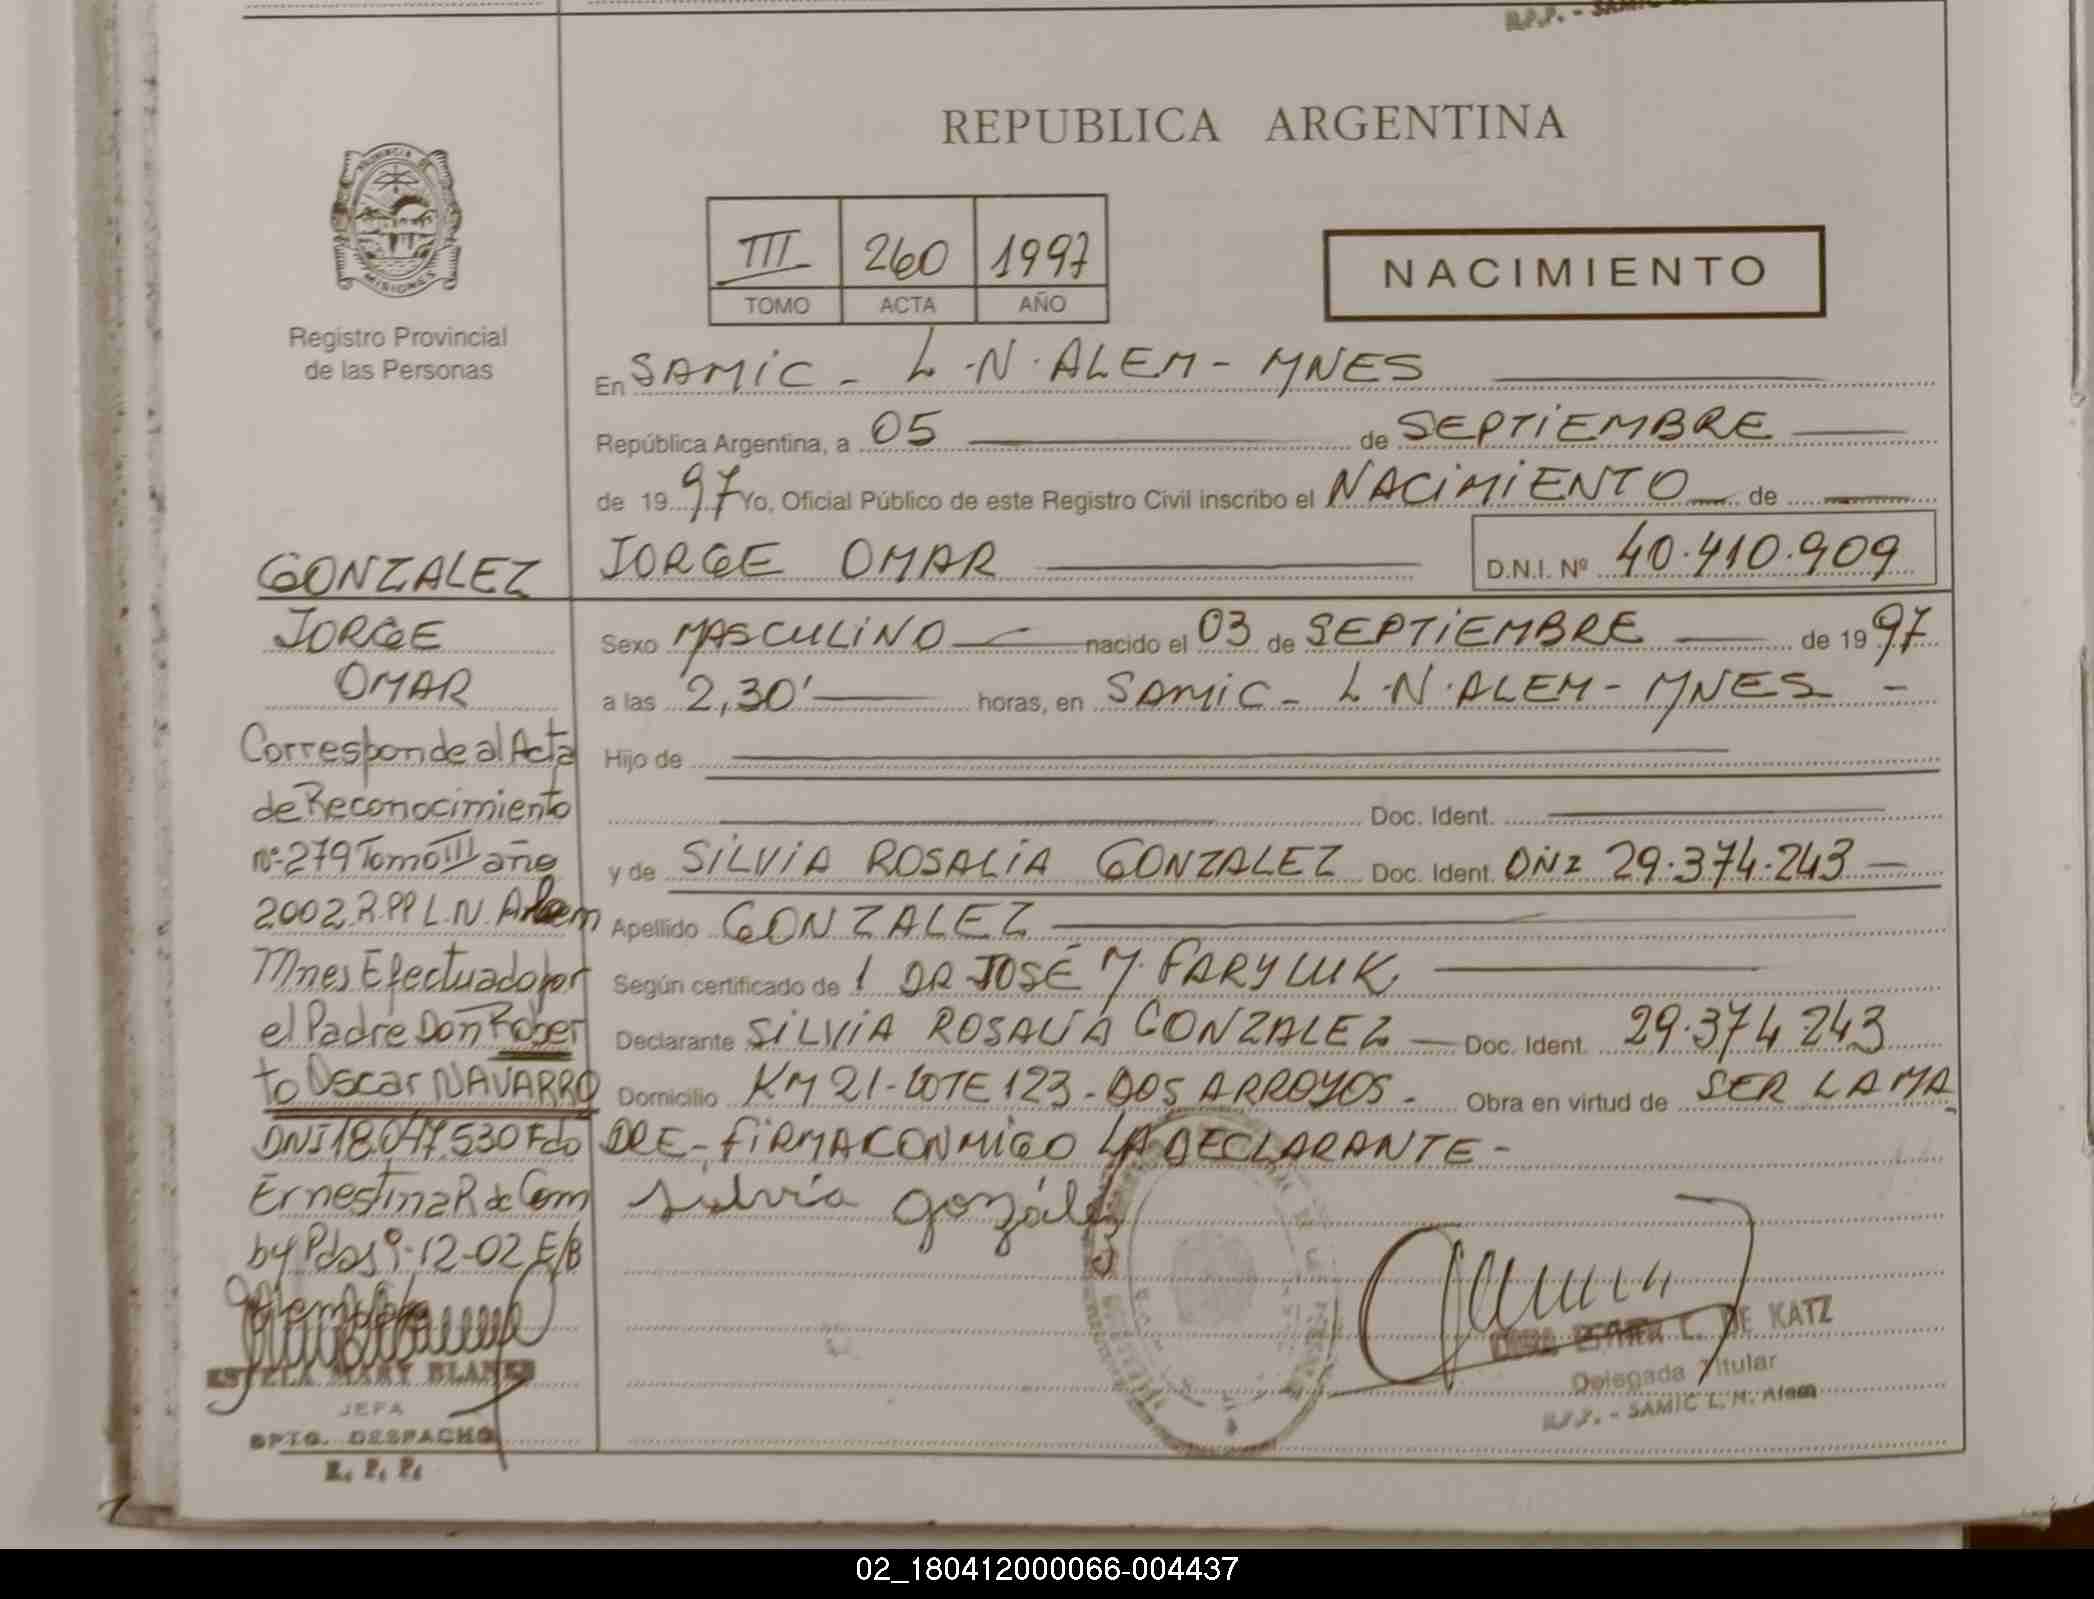 R.P.P. - SAMIC
REPUBLICA ARGENTINA
PROVINCIA DE
MISIONES
Registro Provincial
de las Personas
III 260 1997
TOMO ACTA AÑO
NACIMIENTO
En SAMIC - L.N. ALEM - MNES
República Argentina, a 05 de SEPTIEMBRE
de 1997 Yo, Oficial Público de este Registro Civil inscribo el NACIMIENTO de
JORGE OMAR D.N.I. Nº 40.410.909
Sexo MASCULINO nacido el 03 de SEPTIEMBRE de 1997
a las 2,30' horas, en SAMIC - L.N. ALEM - MNES -
Hijo de
Doc. Ident.
y de SILVIA ROSALIA GONZALEZ Doc. Ident. DNI 29.374.243
Apellido GONZALEZ
Según certificado de 1 DR JOSÉ M. FARYLUK
Declarante SILVIA ROSALIA GONZALEZ Doc. Ident. 29.374.243
Domicilio KM 21 - LOTE 123 - DOS ARROYOS - Obra en virtud de SER LA MA
DRE - FIRMA CONMIGO LA DECLARANTE -
Silvia gonzález
L. DE KATZ
Delegada Titular
R.P.P. - SAMIC L. N. Alem
GONZALEZ
JORGE
OMAR
Corresponde al Acta
de Reconocimiento
nº 279 Tomo III año
2002 R.PP L.N. Alem
Mnes Efectuado por
el Padre Don Rober
to Oscar NAVARRO
DNI 18.047.530 Fdo
Ernestina R de Com
by Pdas 9-12-02 E/B
ESTELA MARY BLANKE
JEFA
DPTO. DESPACHO
R. P. P.
02_180412000066-004437